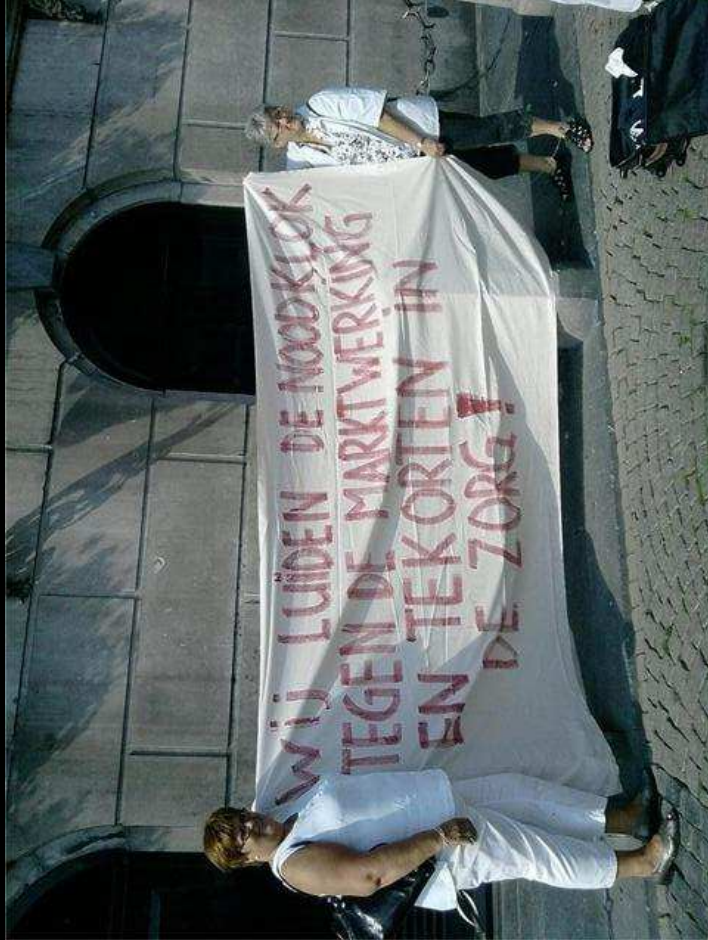 WIJ LUIDEN DE NOODKLOK
TEGEN DE MARKTWERKING
EN TEKORTEN IN
DE ZORG!